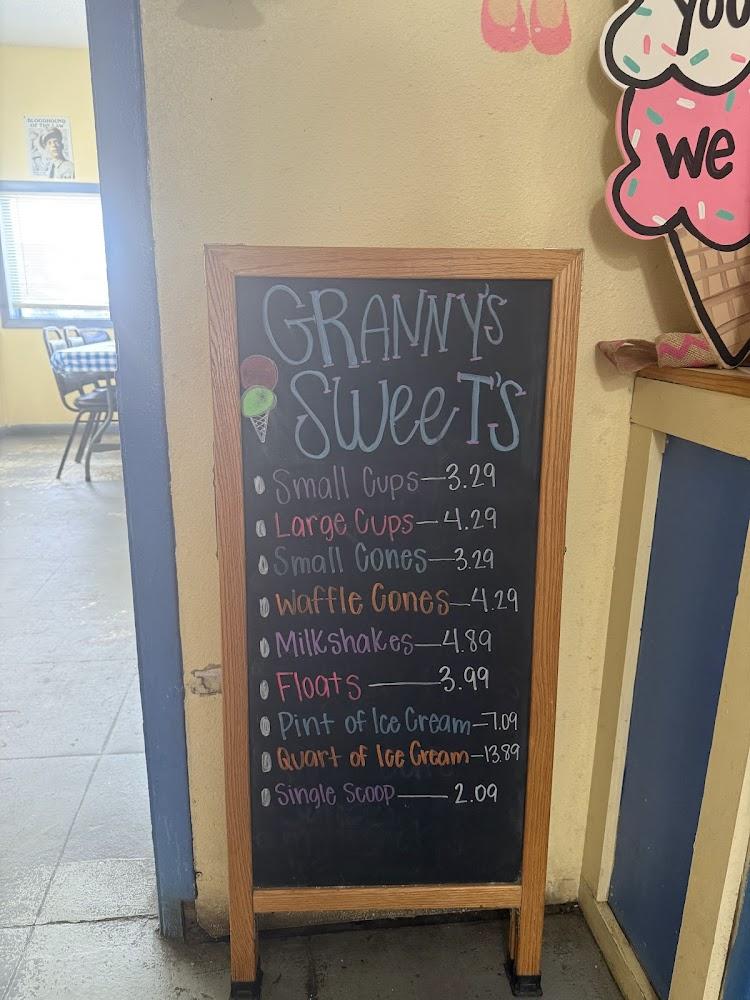 BLOODHOUND
OF THE LAW
YOU
We
GRANNY'S
SWeeT'S
Small Cups—3.29
Large Cups—4.29
Small Cones—3.29
Waffle Cones—4.29
Milkshakes—4.89
Floats—3.99
Pint of Ice Cream—7.09
Quart of Ice Cream—13.89
Single Scoop—2.09